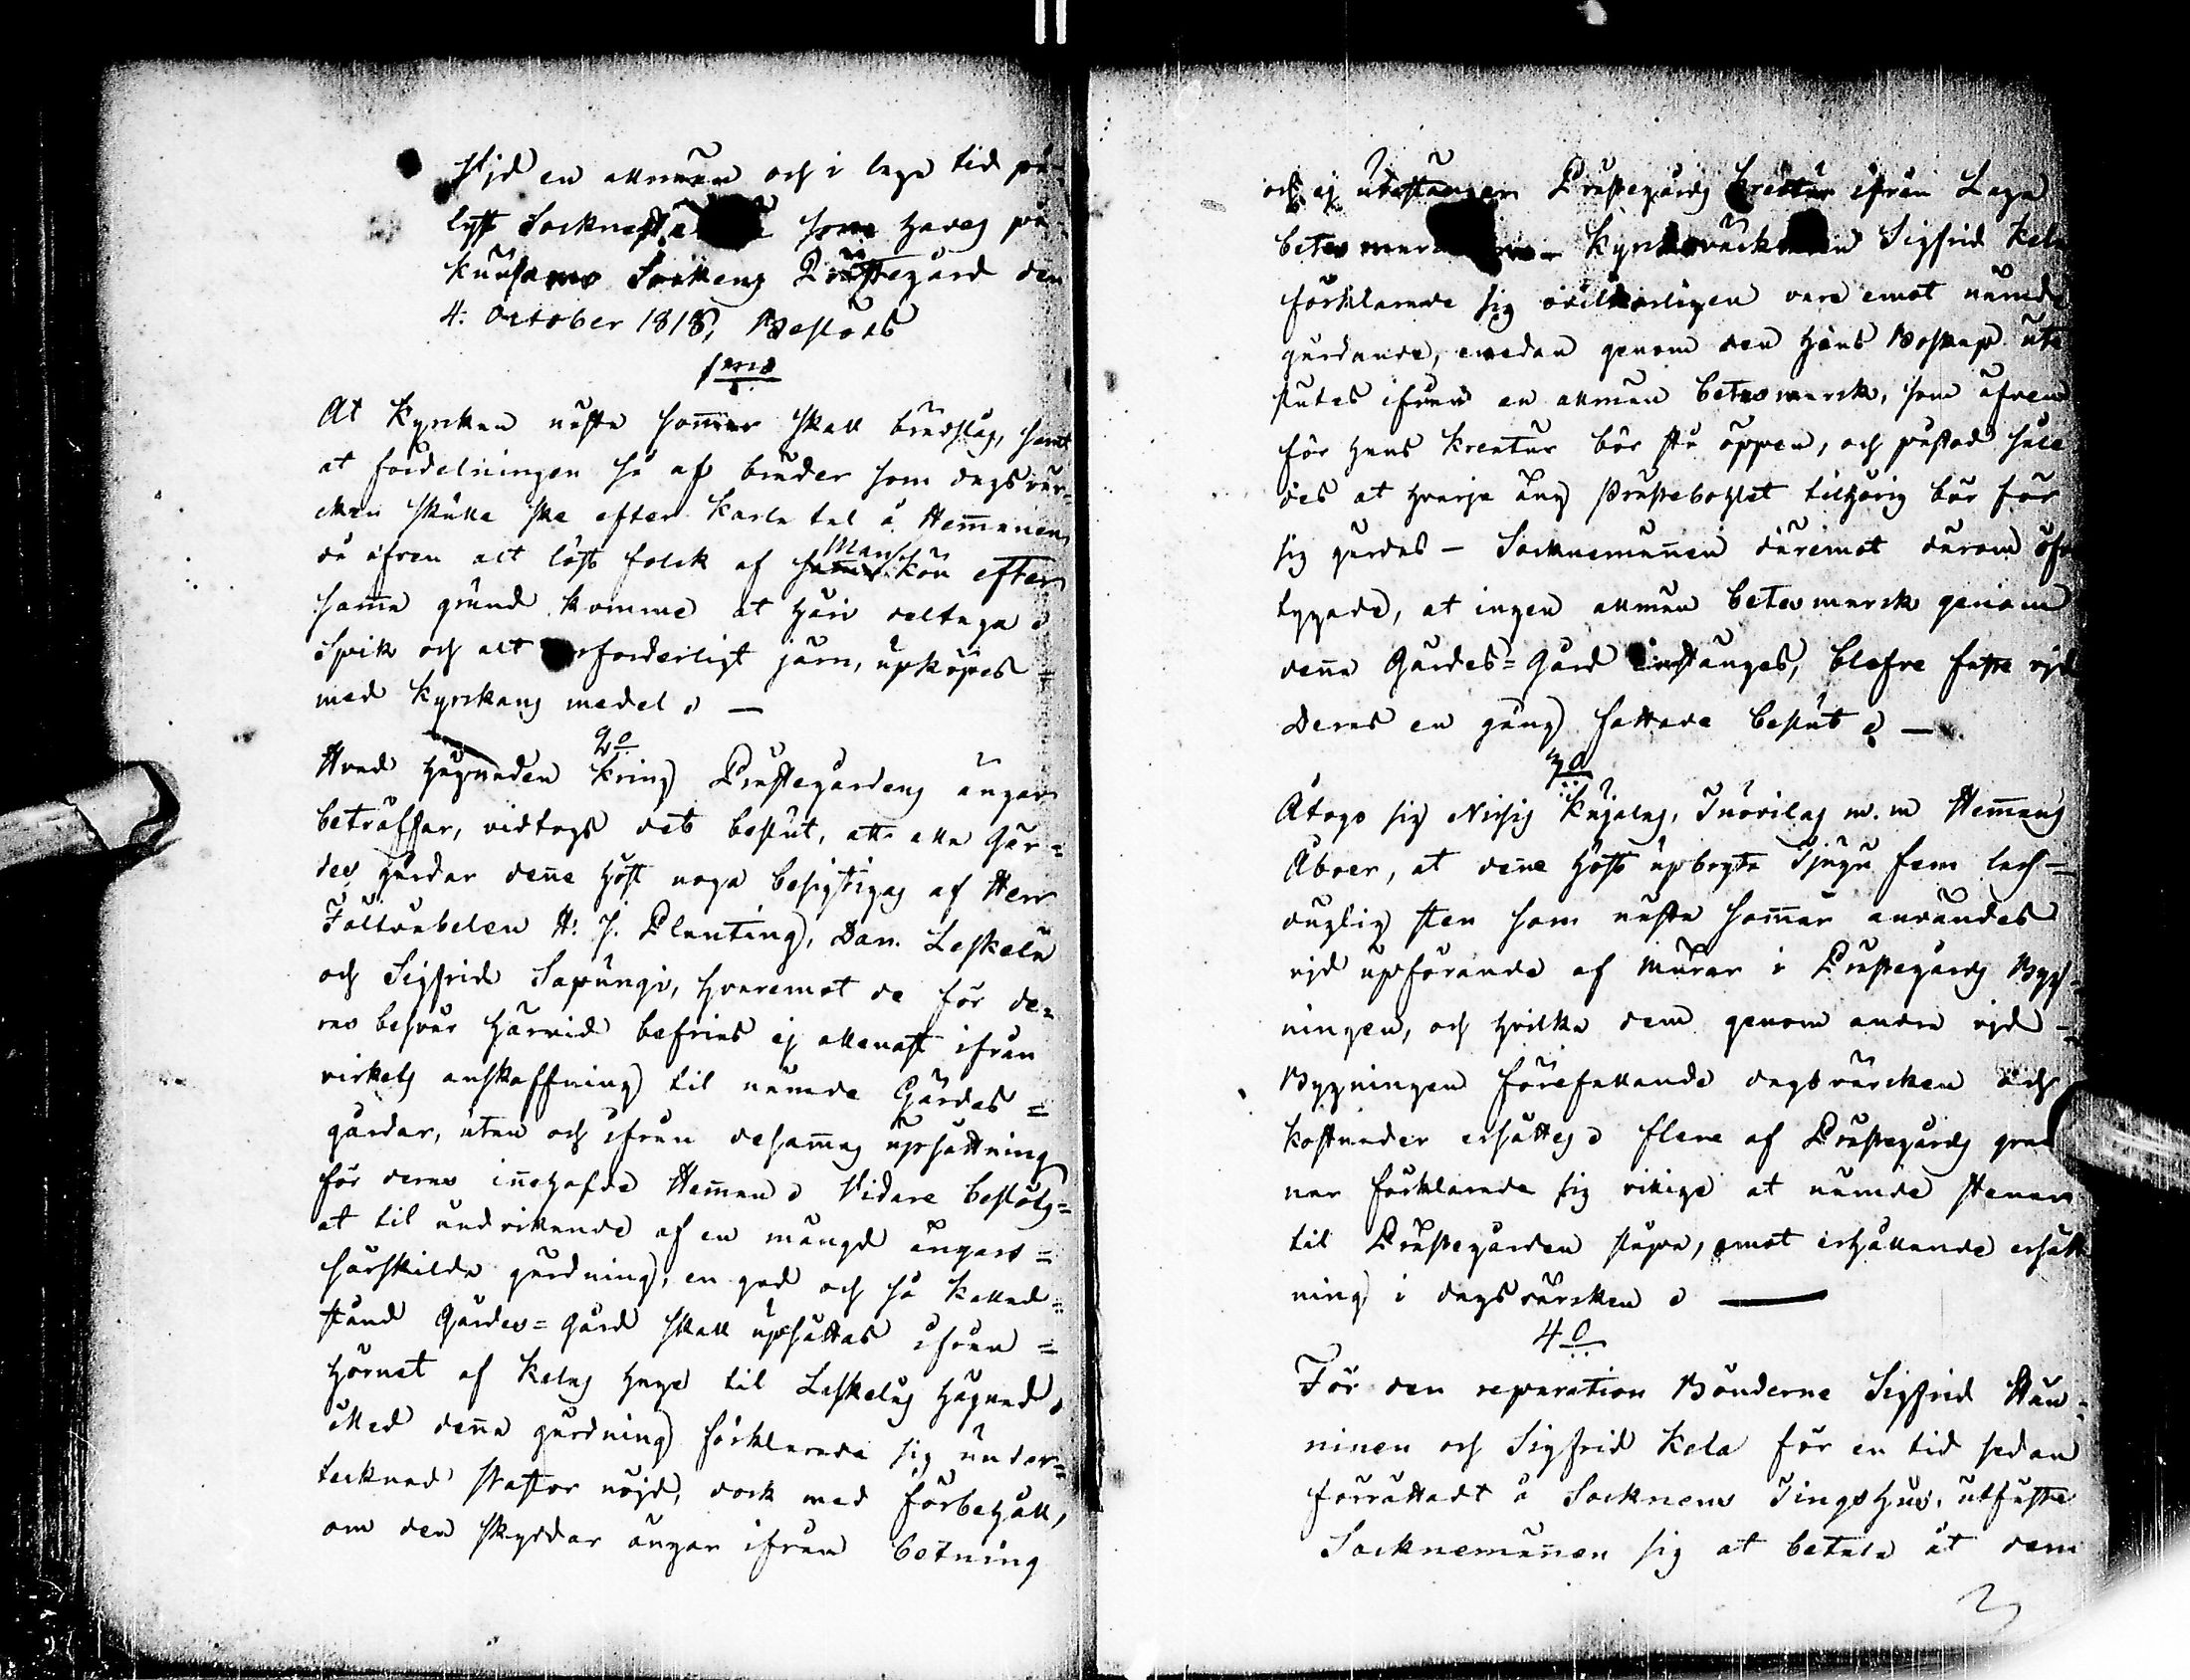 Vid en allmän och i laga tid på-
lyst Sockne som hades på
Kuusamo Sockens Prästegård den
4: October 1818, Beslöts
1mo
At Kyrkan nästa sommar skall brädslås, samt
at fördelningen så af bräder som dagsvär-
cken skulle ske efter karla tal å Hemmanen
då äfven alt löst folck af Mankön efter
samma grund komme at häri deltaga.
Spik och alt erforderligt järn, upköpes
med Kyrckans medel. —
2o
Hvad hägnaden kring Prästegårdens ängar
beträffar, vidtogs det beslut, att alla Gär-
des gårdar denna höst noga besigtigas af Herr
Fältväbelen H. J. Planting, Dan. Leskelä
och Sigfrid Sapungi, hvaremot de för de-
ras besvär härvid befrias ej allenast ifrån
virkets anskaffning til nämde Gärdes=
gårdar, utan och ifrån desammas upsättning
för deras innehafde Hemman. Vidare beslöts
at til undvikande af en mängd ängars
särskilda gärdning, en god och så kallad
stånd Gärdes=Gård skall upsättas ifrån
hörnet af Kelas haga til Leskeläs hägnad.
Med denna gärdning förklarade sig under-
tecknad Pastor nöjd, dock med förbehåll,
om den skyddar ängar ifrån betning
och ej utestänger Prästegårds Creatur ifrån Laga
betesmark Kyrkovärden Sigfrid Kela
förklarade sig ovilkorligen vara emot nämde
gärdande, emedan genom den hans Boskap ute
slutes ifrån en allmän betesmark, som äfven
för hans kreatur bör stå öppen, och påstod såle
des at hvarje äng Prästebohlet tilhörig bör för
sig gärdas — Socknemännen däremot därom öfver
tygade, at ingen allmän betesmark genom
denna Gärdes=Gård instänges, blefve faste vid
Deras en gång fattade beslut. —
3o
Åtogo sig Nissis Kujalas, Tuovilas m.m Hemmans
Åboer, at denna höst upbryta Tjugu fem lass
duglig sten som nästa sommar användes
vid upförande af murar i Prästegårds Byg-
ningen, och hvilka dem genom andra vid
Bygningen förefallande dagsvärcken och
kostnader ersättes. Flere af Prästegårds gran
nar förklarade sig villige at nämde Stenar
til Prästegården släpa, emot erhållande ersätt
ning i dagsvärcken. —
4o
För den reparation Bönderne Sigfrid Hän-
ninen och Sigfrid Kela för en tid sedan
förrättadt å Socknens Tingshus, utfäste
Socknemännen sig at betala åt dem